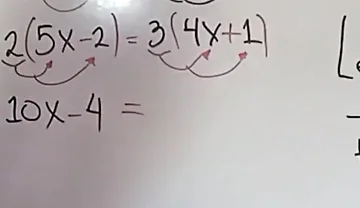 2(5x-2)=3(4x+1)
10x-4=